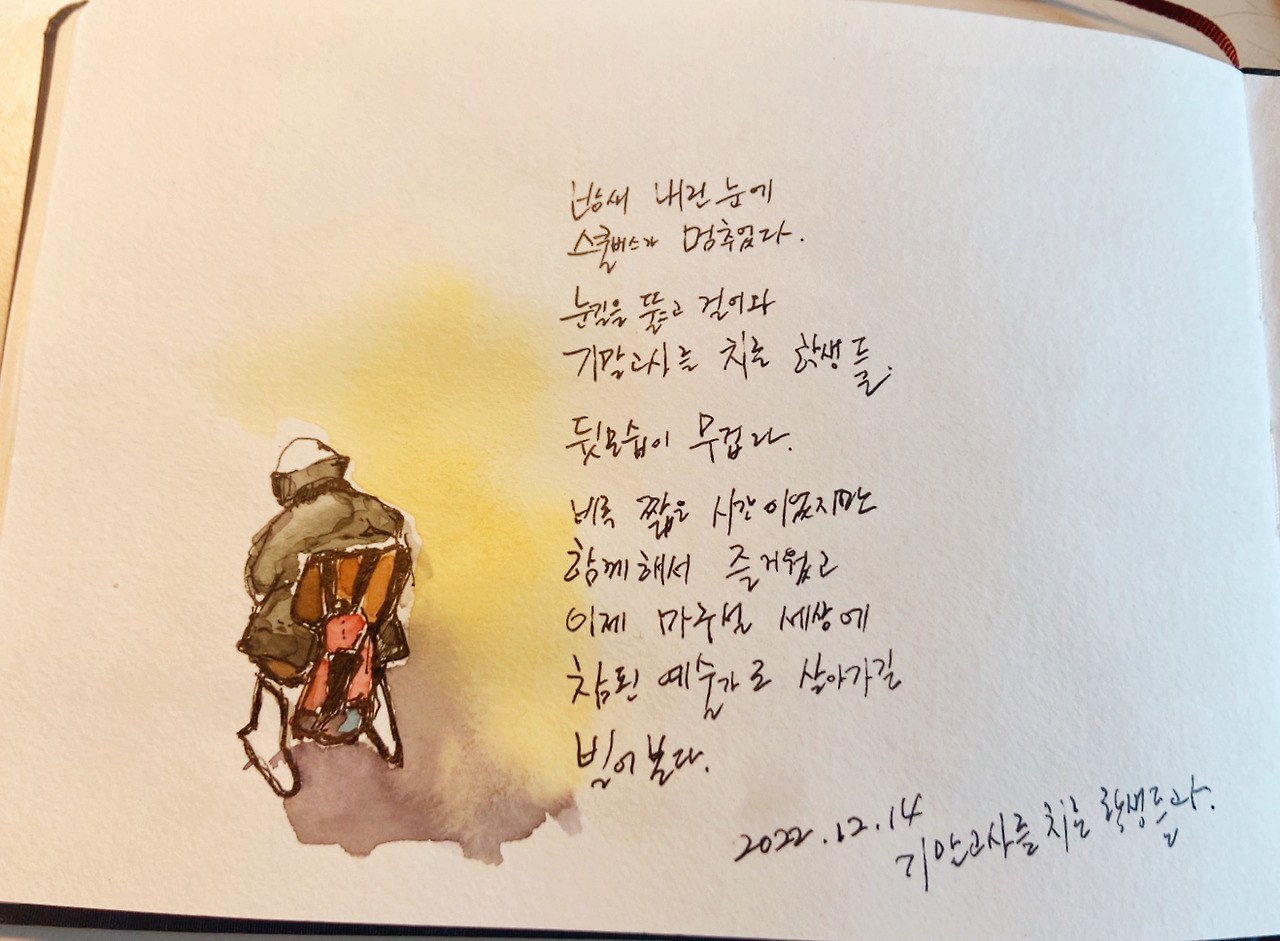 밤새 내린 눈에
스쿨버스가 멈추었다.
눈길을 뚫고 걸어와
기말고사를 치른 학생들.
뒷모습이 무겁다.
비록 짧은 시간이었지만
함께해서 즐거웠고
이제 마주설 세상에
참된 예술가로 살아가길
빌어본다.
2022.12.14
기말고사를 치른 학생들과.